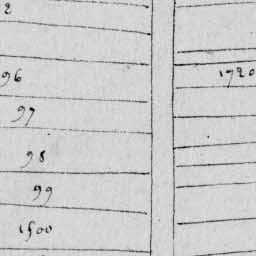 2
96
1720
97
98
99
1500